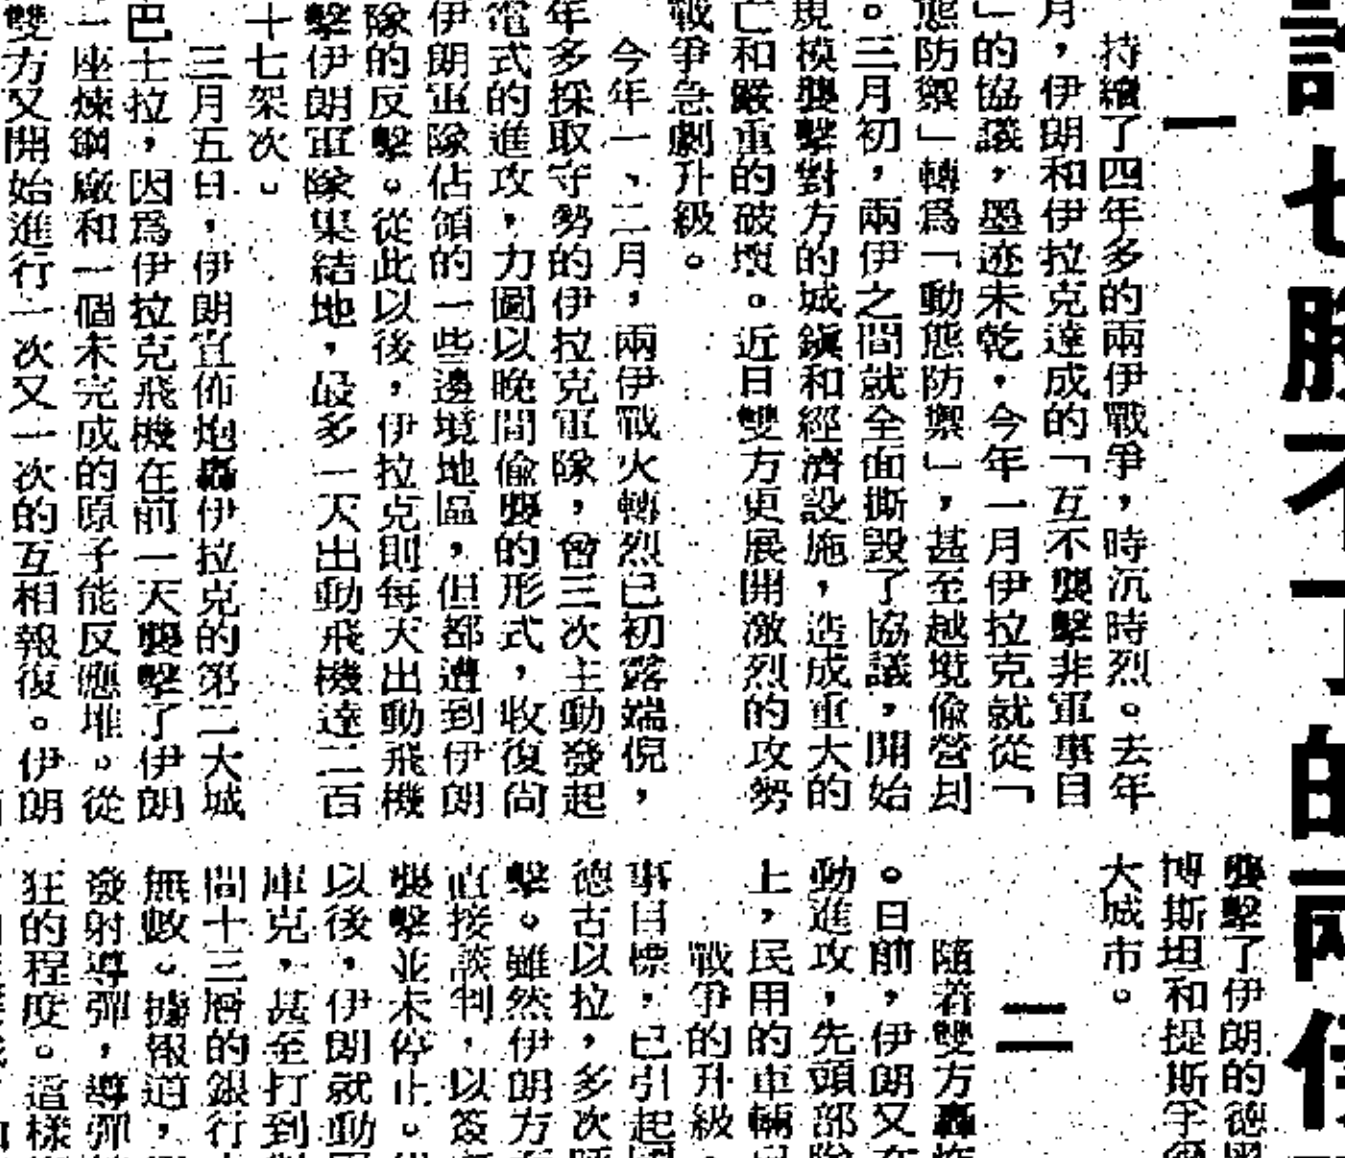 談也勝不了的兩伊
一
持續了四年多的兩伊戰爭，時沉時烈。去年
月，伊朗和伊拉克達成的「互不襲擊非軍事目
」的協議，墨迹未乾，今年一月伊拉克就從「
態防禦」轉爲「動態防禦」，甚至越境偸營刦
。三月初，兩伊之間就全面撕毀了協議，開始
規模襲擊對方的城鎭和經濟設施，造成重大的
亡和嚴重的破壞。近日雙方更展開激烈的攻勢
戰爭急劇升級。
今年一、二月，兩伊戰火轉烈已初露端倪，
年多採取守勢的伊拉克軍隊，曾三次主動發起
電式的進攻，力圖以晚間偸襲的形式，收復尙
伊朗軍隊佔領的一些邊境地區，但都遭到伊朗
隊的反擊。從此以後，伊拉克則每天出動飛機
擊伊朗軍隊集結地，最多一天出動飛機達二百
十七架次。
三月五日，伊朗宣佈炮轟伊拉克的第二大城
巴士拉，因爲伊拉克飛機在前一天襲擊了伊朗
一座煉鋼廠和一個未完成的原子能反應堆。從
雙方又開始進行一次又一次的互相報復。伊朗
襲擊了伊朗的德黑
博斯坦和提斯孚爾
大城市。
二
隨着雙方轟炸
。日前，伊朗又在
動進攻，先頭部隊
上，民用的車輛
戰爭的升級，
事目標，已引起國
德古以拉，多次呼
擊。雖然伊朗方
直接談判，以簽
襲擊並未停止。
以後，伊朗就動
庫克，甚至打到
間十三層的銀行
無數。據報道，
發射導彈，導彈
狂的程度。這樣